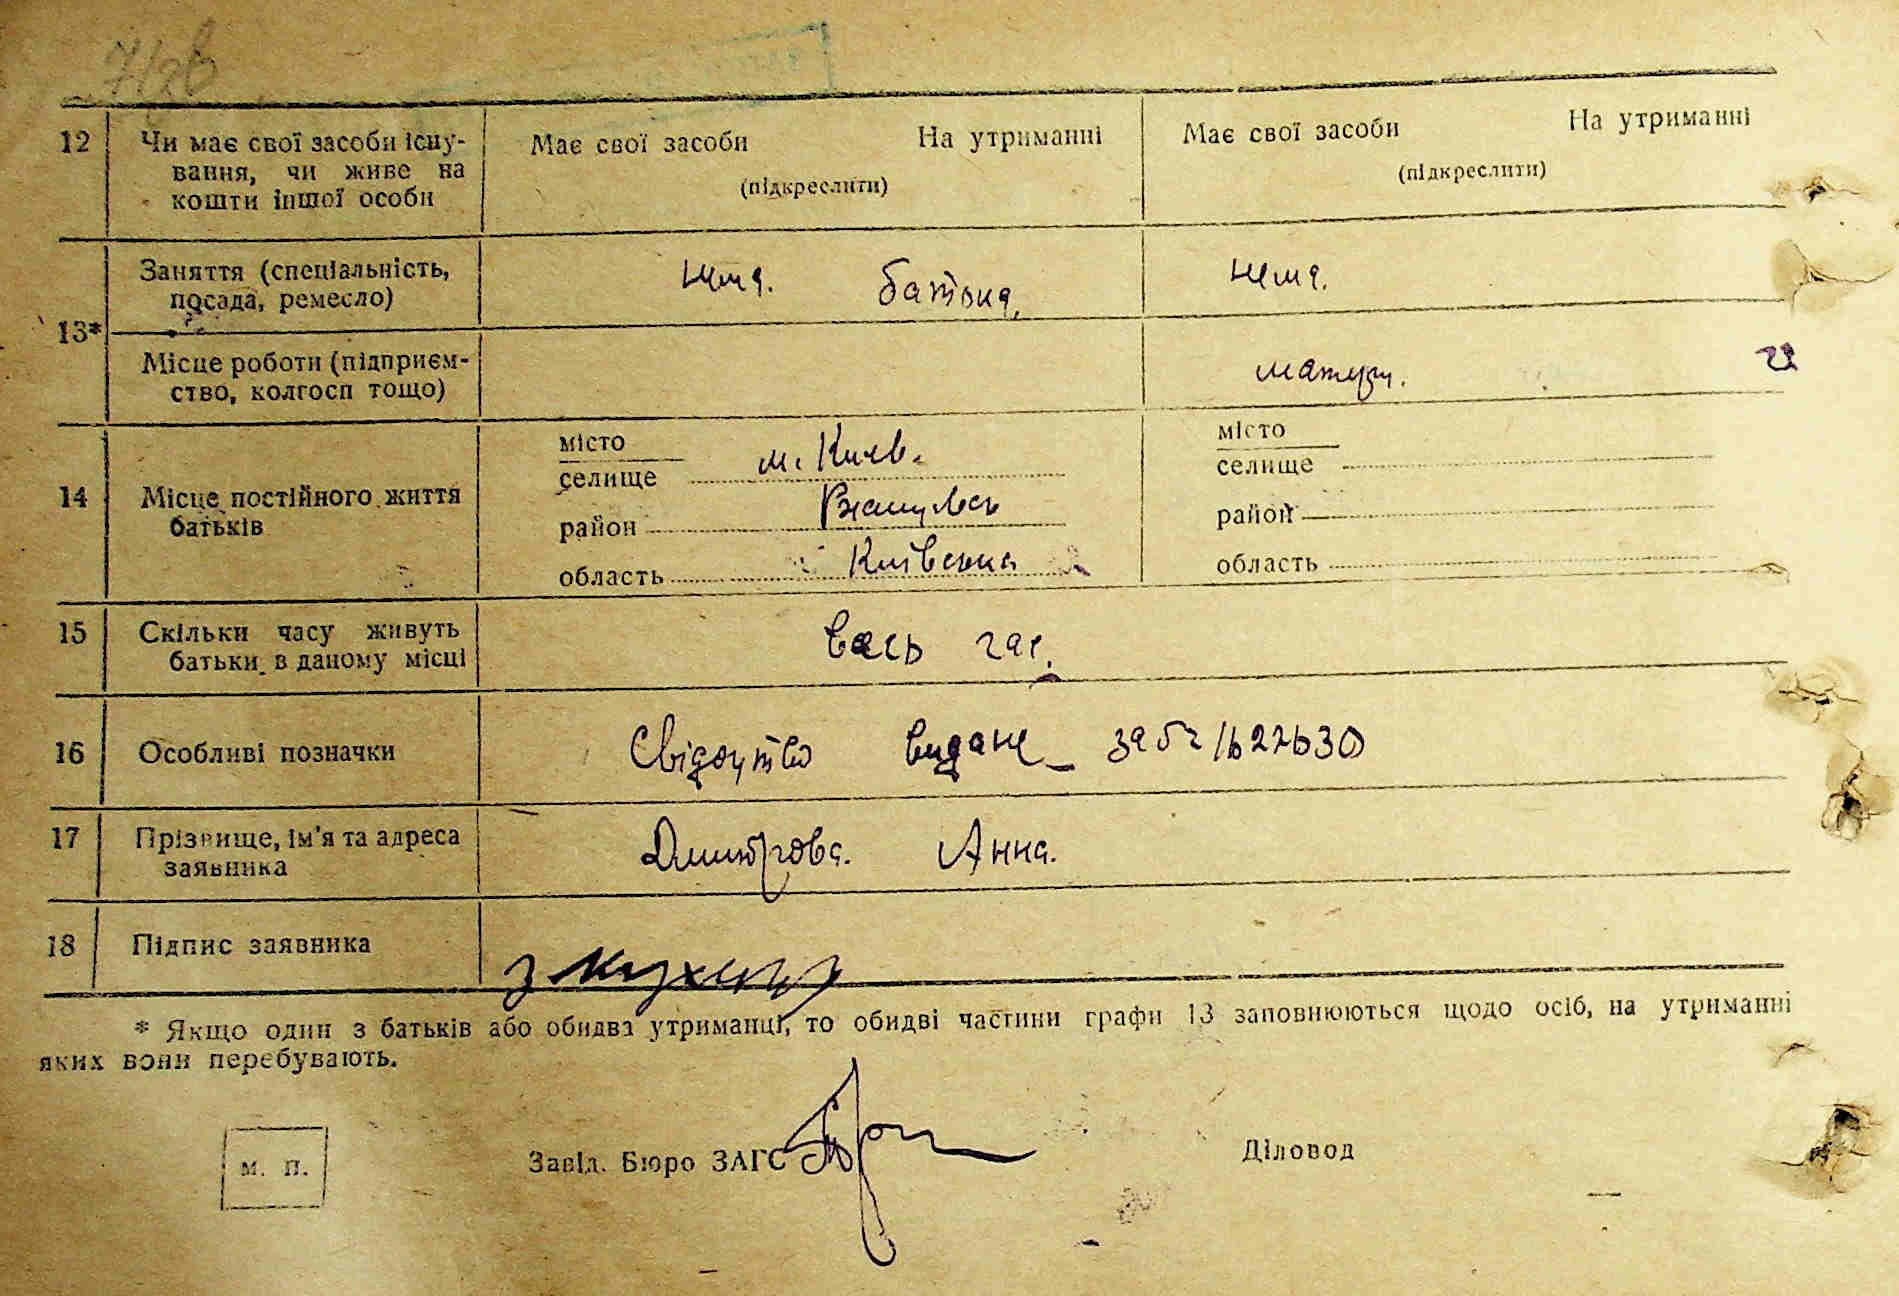 12 Чи має свої засоби існу-
вання, чи живе на
кошти іншої особи
Має свої засоби На утриманні
(підкреслити)
Має свої засоби На утриманні
(підкреслити)
13*
Заняття (спеціальність,
посада, ремесло)
нема. батька.
нема.
Місце роботи (підприєм-
ство, колгосп тощо)
матери.
14 Місце постійного життя
батьків
місто
селище
м. Киев.
район
область Київська
місто
селище
район
область
15 Скільки часу живуть
батьки в даному місці
весь час.
16 Особливі позначки
Свідоцтво видане
17 Прізвище, ім'я та адреса
заявника
Дмитрова. Анна.
18 Підпис заявника
* Якщо один з батьків або обидва утриманці, то обидві частини графи 13 заповнюються щодо осіб, на утриманні
яких вони перебувають.
М. П.
Завід. Бюро ЗАГС
Діловод